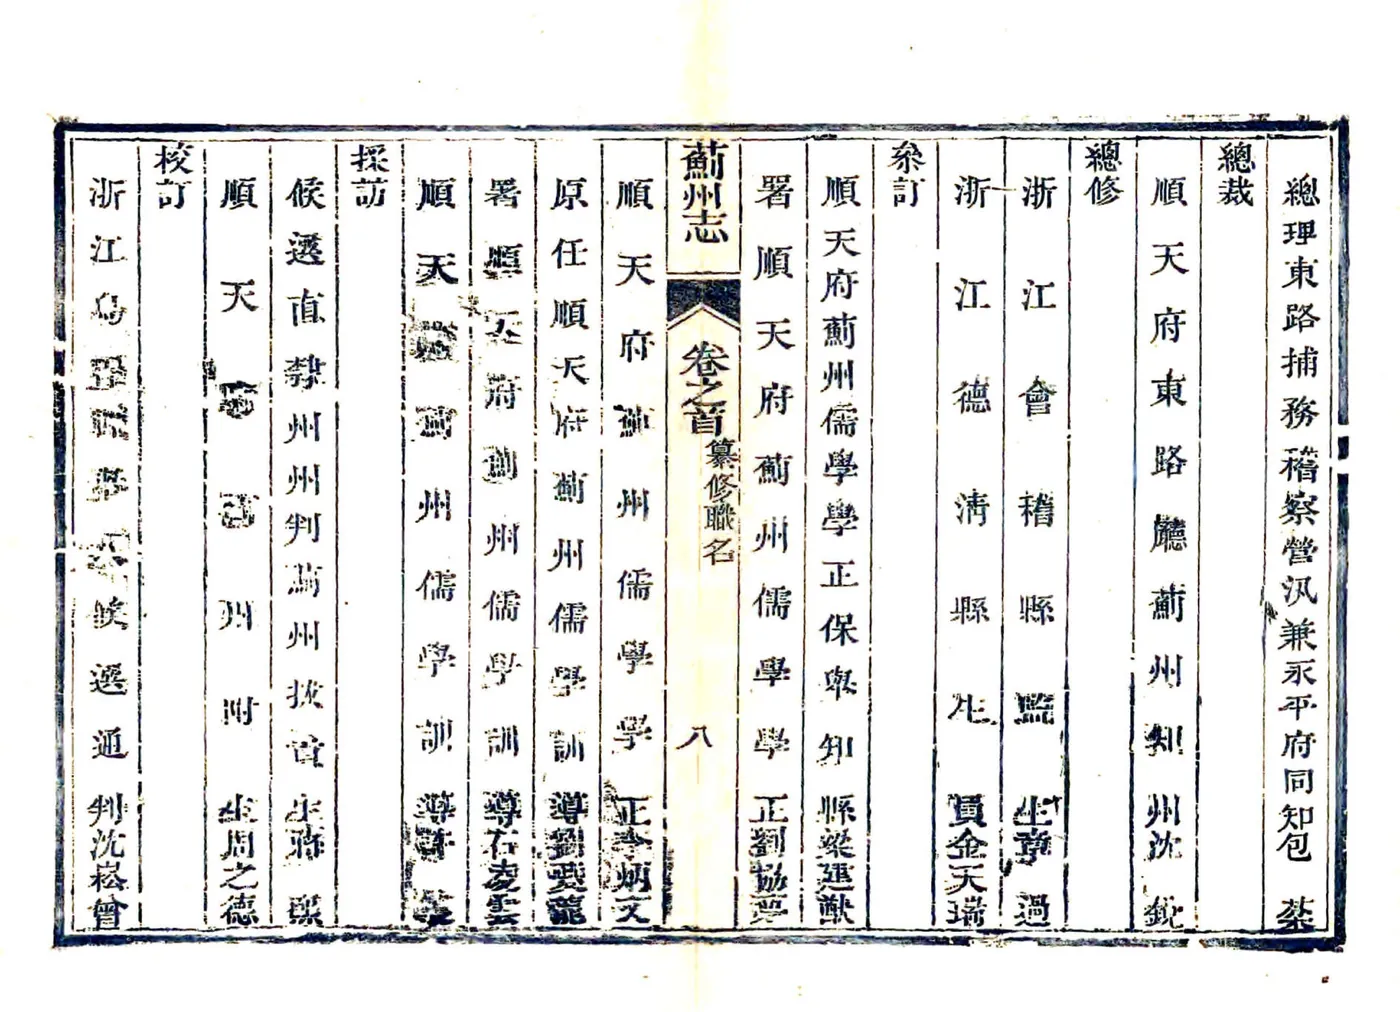 總理東路捕務稽察營汛兼永平府同知包桼
總裁
順天府東路廳薊州知州沈銳
總修
浙江會稽縣監生章過
浙江德清縣生員金天瑞
叅訂
順天府薊州儒學學正保舉知縣梁建猷
署順天府薊州儒學學正劉協夢
薊州志
卷之首
纂修職名
八
順天府薊州儒學學正李炳文
原任順天府薊州儒學訓導劉武龍
署順天府薊州儒學訓導石凌雲
順天府薊州儒學訓導許
採訪
候選直隸州州判薊州拔貢生
順天府薊州附生周之德
校訂
浙江烏程縣候選通判沈崧曾